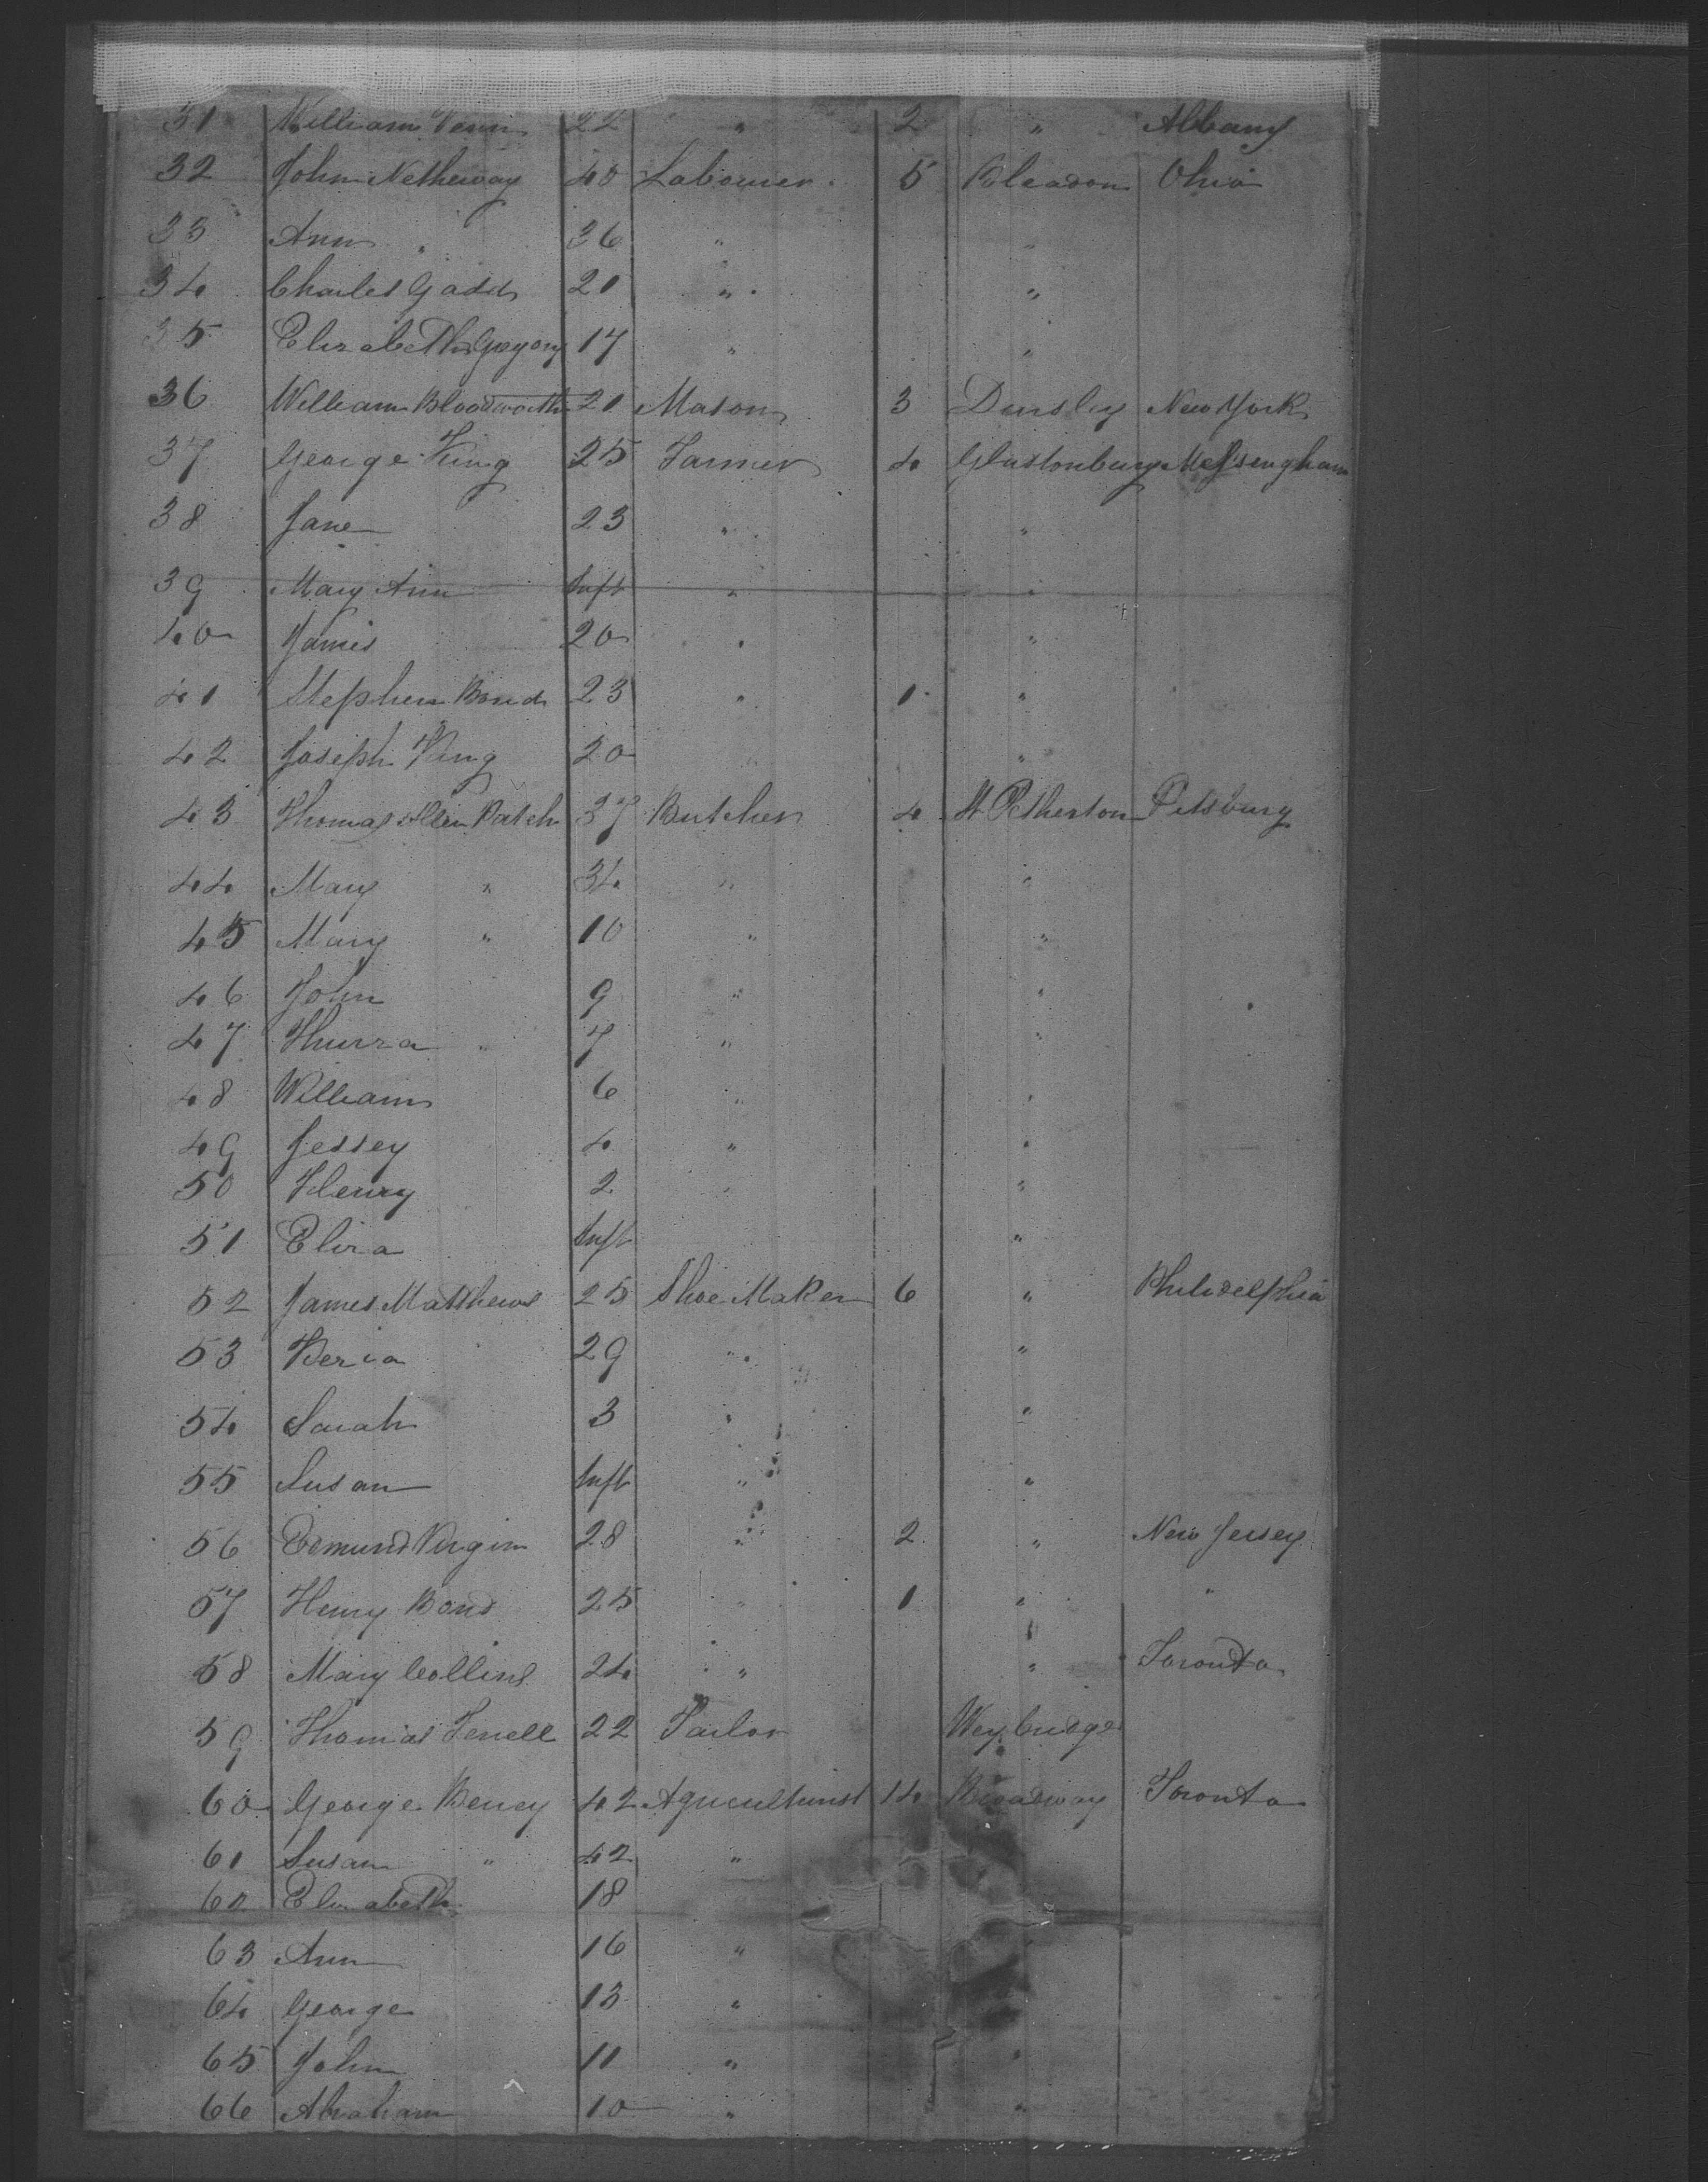 31 William Venn 22 " 2 " Albany
32 John Netheway 40 Labourer 5 Bleadon Ohio
33 Ann " 36 " "
34 Charles Gadd 21 " "
35 Elizabeth Gregory 17 " "
36 William Bloodworth 21 Mason 3 Dursley New York
37 George King 25 Farmer 4 Glastonbury
38 Jane 23 " "
39 Mary Ann Inft " "
40 James 20 " "
41 Stephen Bond 23 " 1 "
42 Joseph King 20 "
43 Thomas Allen Patch 37 Butcher 4 St Petherton Pitsburg
44 Mary " 34 " "
45 Mary " 10 " "
46 John 9 " "
47 Thurza " 7 " "
48 William 6 " "
49 Jessey 4 " "
50 Henry 2 " "
51 Eliza Inft "
52 James Matthews 25 Shoe Maker 6 " Philidelphia
53 29 " "
54 Sarah 3 " "
55 Susan Inft " "
56 Edmund Virgin 28 " 2 " New Jersey
57 Henry Bond 25 " 1 " "
58 Mary Collins 24 " " Toronto
59 Thomas 22 Tailor Weybridge
60 George 42 Agriculturist 14 Broadway Toronto
61 Susan " 42 "
62 Elizabeth 18
63 Ann 16 "
64 George 13 "
65 John 11 " "
66 Abraham 10 " "